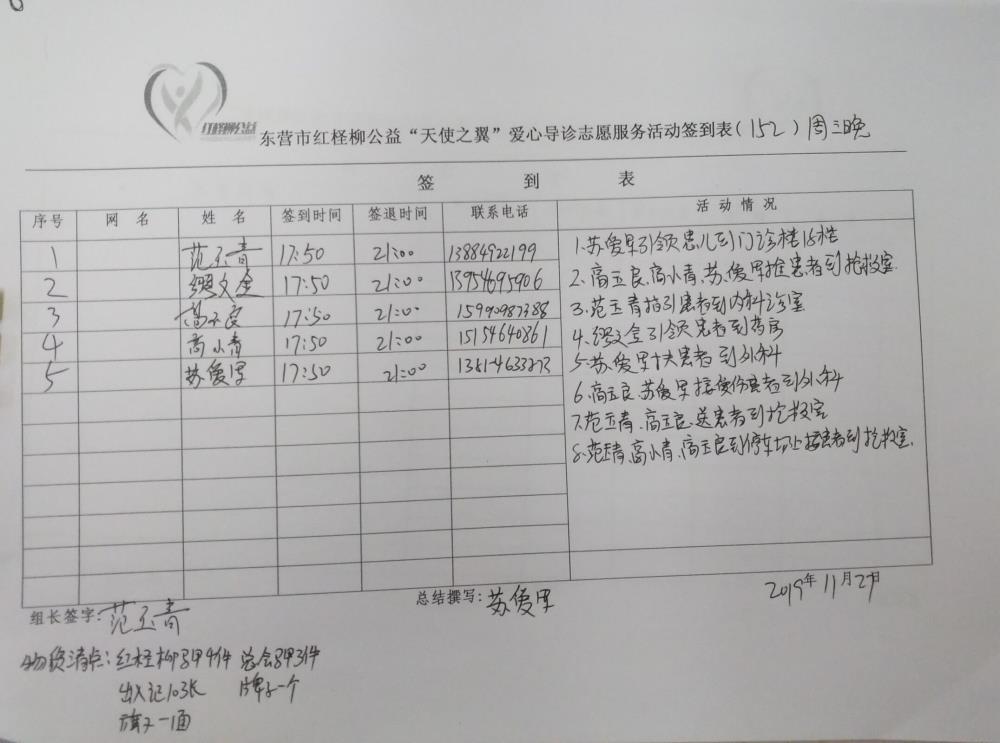 红柽柳公益
东营市红柽柳公益“天使之翼”爱心导诊志愿服务活动签到表(152)周三晚
签 到 表
序号 网 名 姓 名 签到时间 签退时间 联系电话 活动情况
1 范玉青 17:50 21:00 13884922199
2 缪文金 17:50 21:00 13954695906
3 高玉良 17:50 21:00 15990987388
4 高小青 17:50 21:00 15154640861
5 苏俊早 17:50 21:00
1.苏俊早引领患儿到门诊楼16楼
2.高玉良、高小青、苏俊早推患者到抢救室
3.范玉青指引患者到内科诊室
4.缪文金引领患者到药房
5.苏俊早 患者到外科
6.高玉良、苏俊早接受伤患者到外科
7.范玉青、高玉良送患者到抢救室
8.范玉青、高小青、高玉良到停车场上接患者到抢救室.
组长签字:范玉青
总结撰写:苏俊早
2019年11月27日
物资清点:红柽柳马甲4件 总会马甲3件
出入记103张 牌子一个
旗子一面